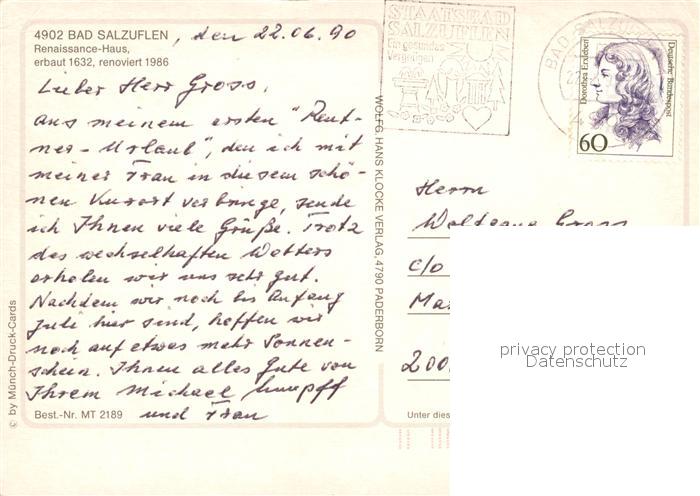 4902 BAD SALZUFLEN, den 22.06.90
Renaissance-Haus,
erbaut 1632, renoviert 1986
Lieber Herr Gross,
aus meinem ersten "Rent-
ner-Urlaub", den ich mit
meiner Frau in diesem schö-
nen Kurort verbringe, sende
ich Ihnen viele Grüße. Trotz
des wechselhaften Wetters
erholen wir uns sehr gut.
Nachdem wir noch bis Anfang
Juli hier sind, hoffen wir
noch auf etwas mehr Sonnen-
schein. Ihnen alles Gute von
Ihrem Michael
und Frau
Best.-Nr. MT 2189
© by Münch-Druck-Cards
WOLFG. HANS KLOCKE VERLAG, 4790 PADERBORN
STAATSBAD
SALZUFLEN
Ein gesundes
Vergnügen
BAD SALZUFLEN
Dorothea Erxleben
Deutsche Bundespost
60
Herrn
Wolfgang Gross
c/o
200
Unter dies
privacy protection
Datenschutz